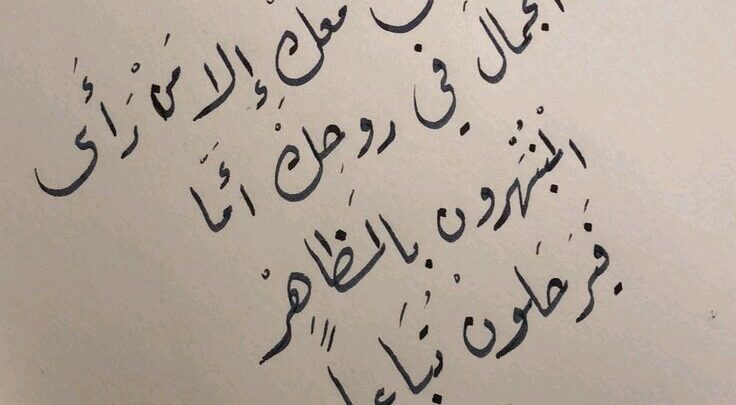 معك إلا من رَأَى
الجمال في روحِكْ أمّا
المنْبَهرون بالمَظَاهِرْ
فَيَرحَلونْ تُبَاعاً